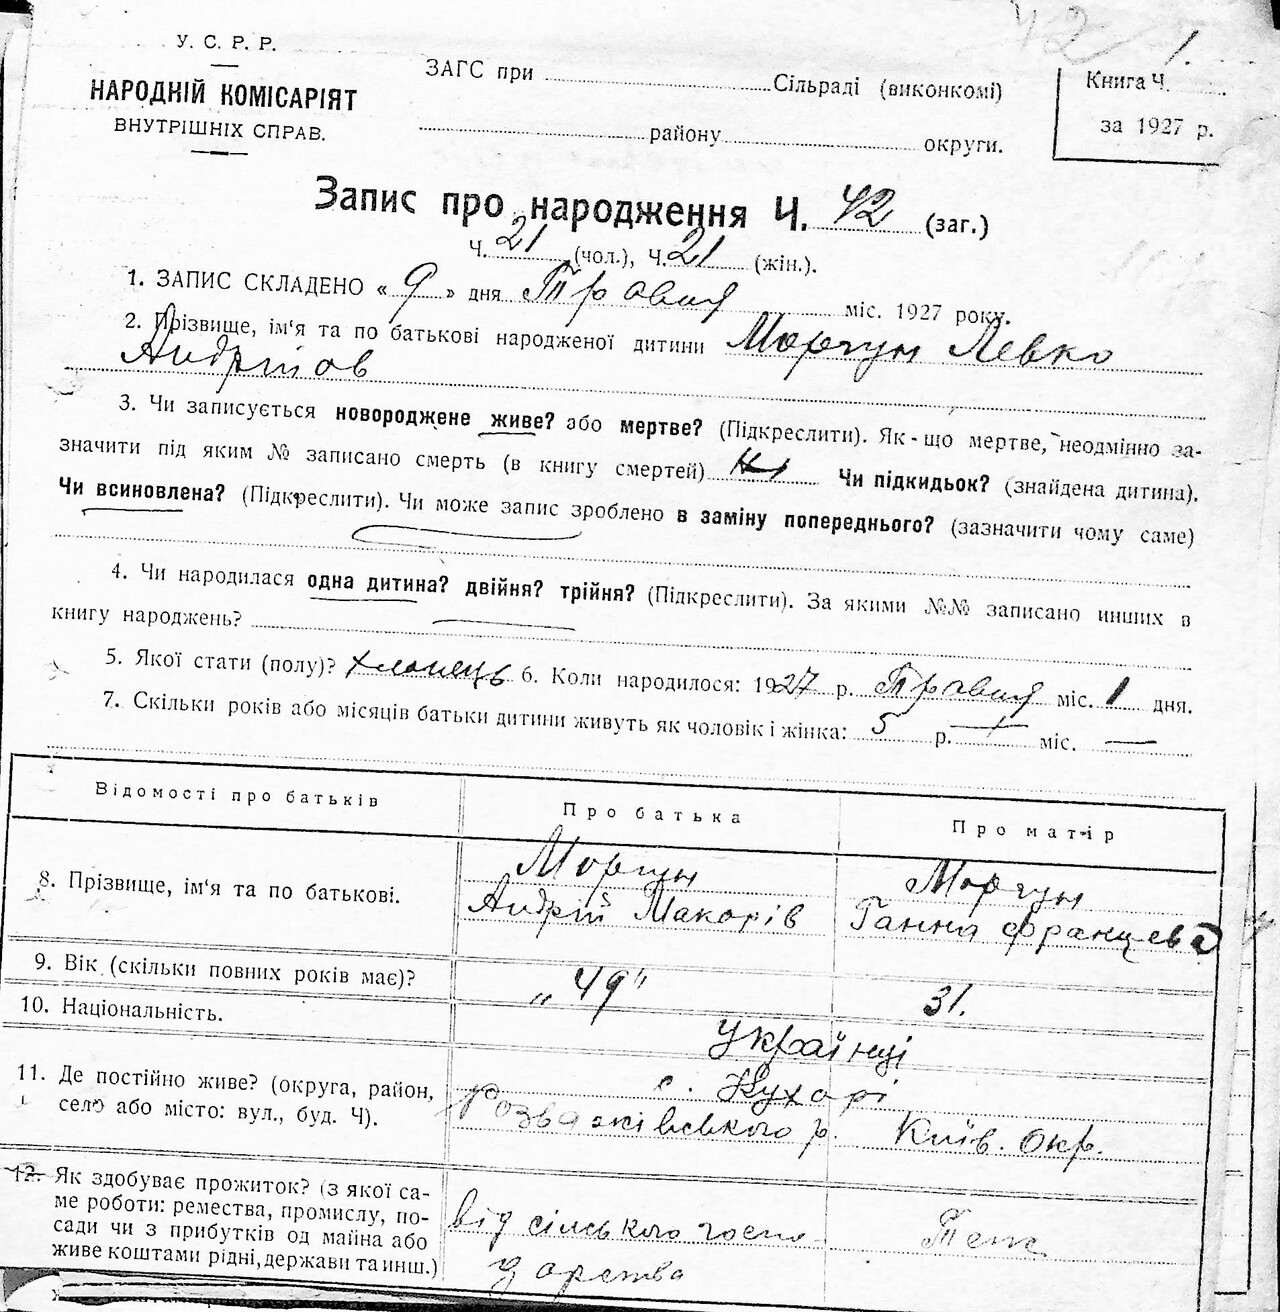 42 1.
У. С. Р. Р.
НАРОДНІЙ КОМІСАРІЯТ
ВНУТРІШНІХ СПРАВ.
ЗАГС при Сільраді (виконкомі)
району округи.
Книга Ч.
за 1927 р.
Запис про народження Ч. 42 (заг.)
Ч. 21 (чол.), Ч. 21 (жін.).
1. ЗАПИС СКЛАДЕНО « 9 » дня Травня міс. 1927 року.
2. Прізвище, ім‘я та по батькові народженої дитини Моргун Левко
Андріїов
3. Чи записується новороджене живе? або мертве? (Підкреслити). Як-що мертве, неодмінно за-
значити під яким № записано смерть (в книгу смертей) Чи підкидьок? (знайдена дитина).
Чи всиновлена? (Підкреслити). Чи може запис зроблено в заміну попереднього? (зазначити чому саме)
4. Чи народилася одна дитина? двійня? трійня? (Підкреслити). За якими №№ записано инших в
книгу народжень?
5. Якої стати (полу)? хлопець 6. Коли народилося: 1927 р. Травня міс. 1 дня.
7. Скільки років або місяців батьки дитини живуть як чоловік і жінка: 5 р. міс. —
Відомості про батьків Про батька Про матір
8. Прізвище, ім‘я та по батькові. Моргун Моргун
Андрій Макарів Ганна Францева
9. Вік (скільки повних років має)? „49" 31.
10. Національність. Українці
11. Де постійно живе? (округа, район, с. Кухарі
село або місто: вул., буд. Ч). Розважівського р. Київ. окр.
12. Як здобуває прожиток? (з якої са-
ме роботи: ремества, промислу, по-
сади чи з прибутків од майна або
живе коштами рідні, держави та инш.)
від сільського госпо- Теж
дарства